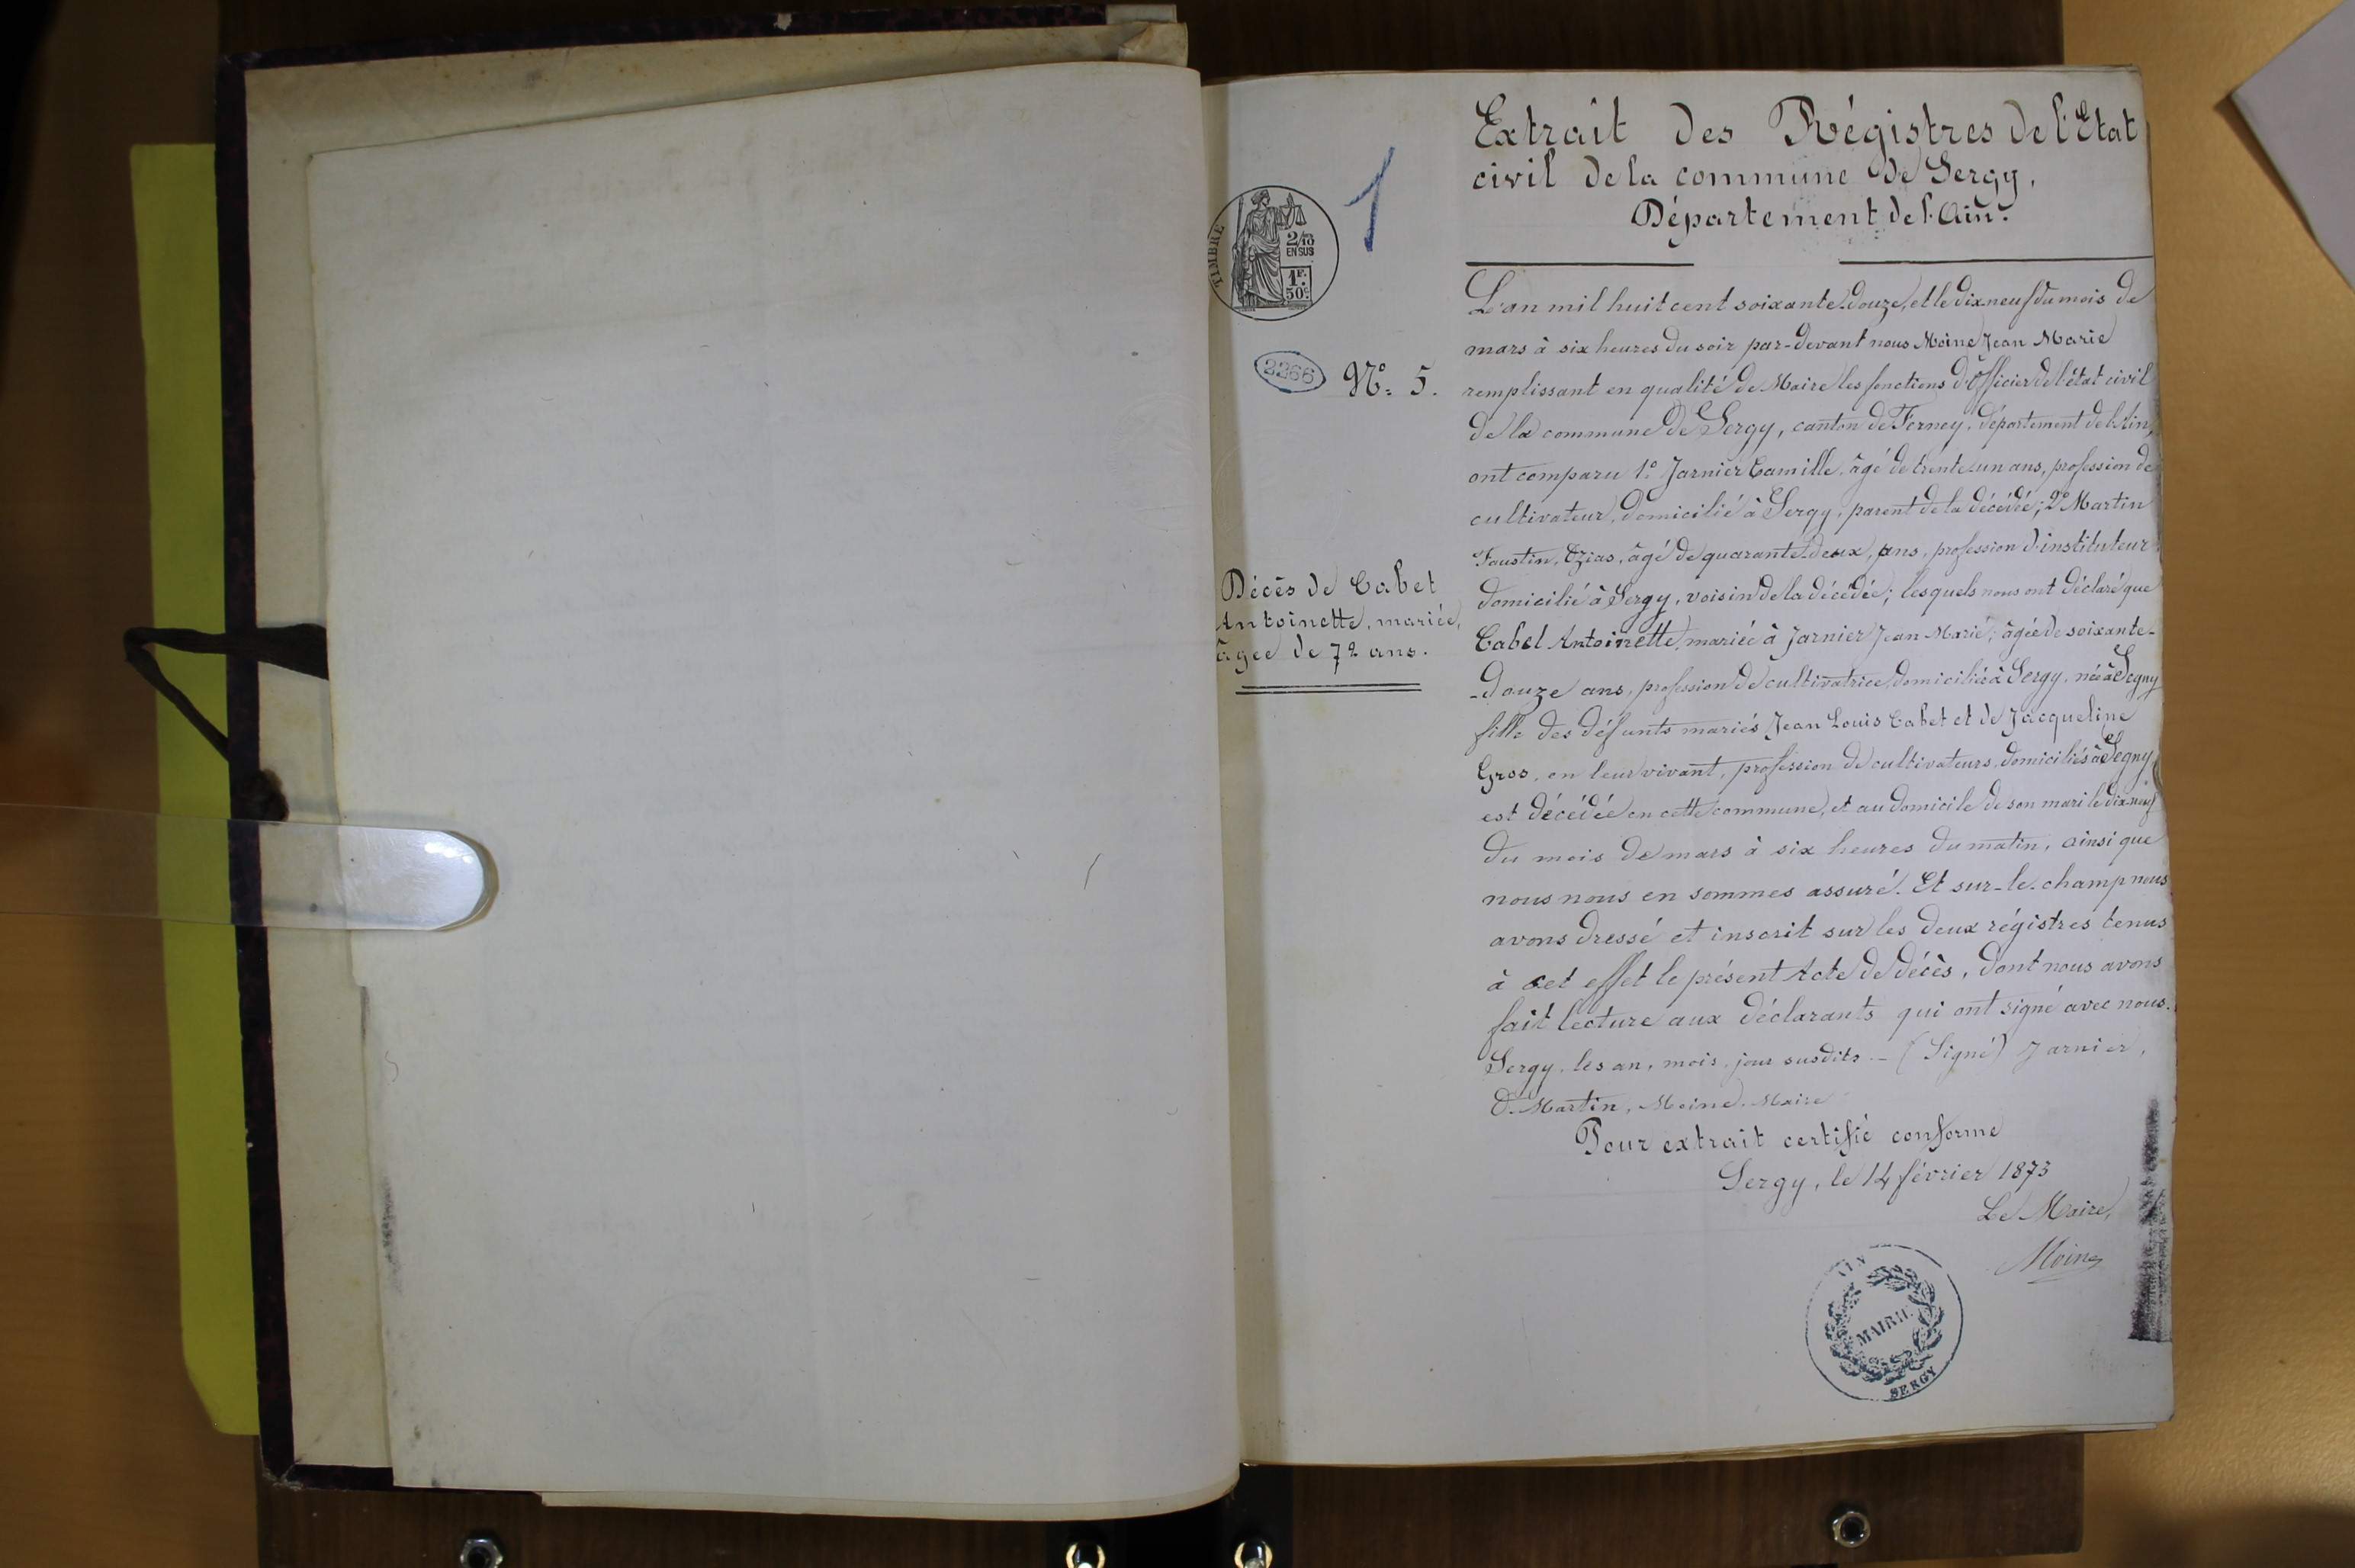 Extrait des Régistres de l'Etat
civil de la commune de Sergy,
Département de l'Ain.
1
TIMBRE
2/10
EN SUS
1F.
50c
2266
No. 5.
Décès de Cabet
Antoinette, mariée,
âgée de 72 ans.
L'an mil huit cent soixante-douze, et le dix neuf du mois de
mars à six heures du soir par-devant nous Moine Jean Marie
remplissant en qualité de Maire les fonctions d'Officier de l'état civil
de la commune de Sergy, canton de Ferney, département de l'Ain,
ont comparu 1º Jarnier Camille, âgé de trente-un ans, profession de
cultivateur, domicilié à Sergy, parent de la décédée; 2º Martin
Faustin, Ozias, âgé de quarante-deux, ans, profession d'instituteur
domicilié à Sergy, voisin de la décédée; lesquels nous ont déclaré que
Cabet Antoinette, mariée à Jarnier Jean Marie, âgée de soixante-
-douze ans, profession de cultivatrice, domiciliée à Sergy, née à Segny
fille des défunts mariés Jean Louis Cabet et de Jacqueline
Gros, en leur vivant, profession de cultivateurs, domiciliés à Segny,
est décédée en cette commune, et au domicile de son mari le dix-neuf
du mois de mars à six heures du matin, ainsi que
nous nous en sommes assuré. Et sur-le-champ nous
avons dressé et inscrit sur les deux régistres tenus
à cet effet le présent Acte de décès, dont nous avons
fait lecture aux déclarants qui ont signé avec nous.
Sergy, les an, mois, jour susdits. – (Signé) Jarnier,
O. Martin, Moine, Maire
Pour extrait certifié conforme
Sergy, le 14 février 1873
Le Maire,
Moine
AIN
MAIRIE
SERGY